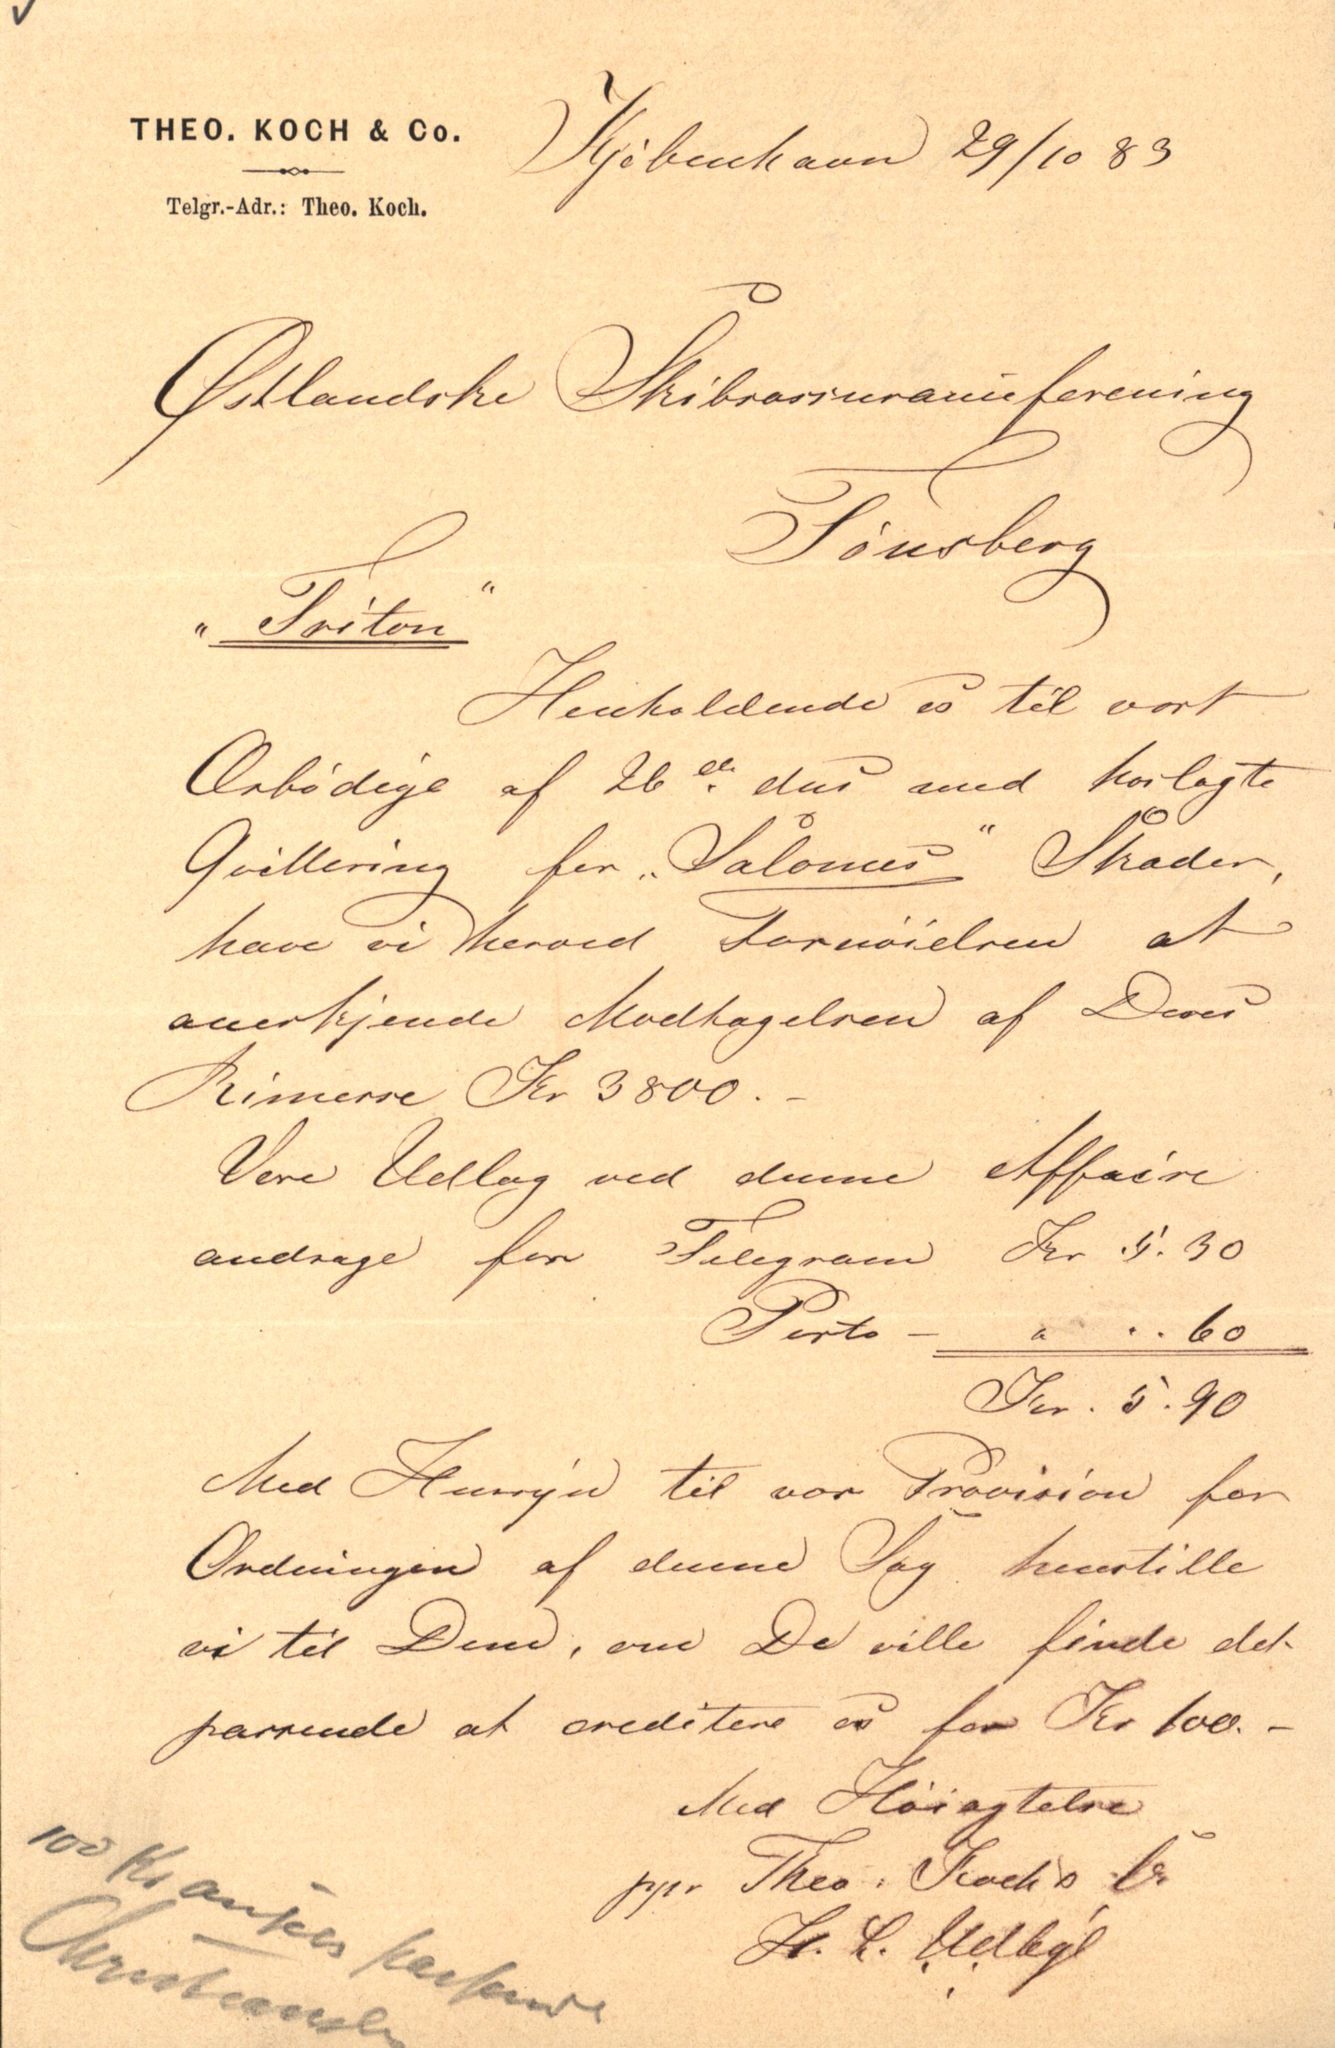 THEO. KOCH & Co.
Telgr.-Adr.: Theo. Koch.
Kjøbenhavn 29/10 83
Østlandske Skibsassuranceforening
Tønsberg
"Triton"
Henholdende os til vort
Ærbødige af 26de ds med hoslagte
Qvittering for "Salomes" Skader,
have vi herved Fornøielsen at
anerkjende Modtagelsen af Deres
Rimesse Kr 3800.-
Vore Udlæg ved denne Affaire
andrage for Telegram Kr 5.30
Porto - " ..60
Kr. 5.90
Med Hensyn til vor Provision for
Ordningen af denne Sag henstille
vi til Dem, om De ville finde det
passende at creditere os for Kr 100.-
Med Høiagtelse
ppr Theo. Koch & Co
100 Kr ansees passende